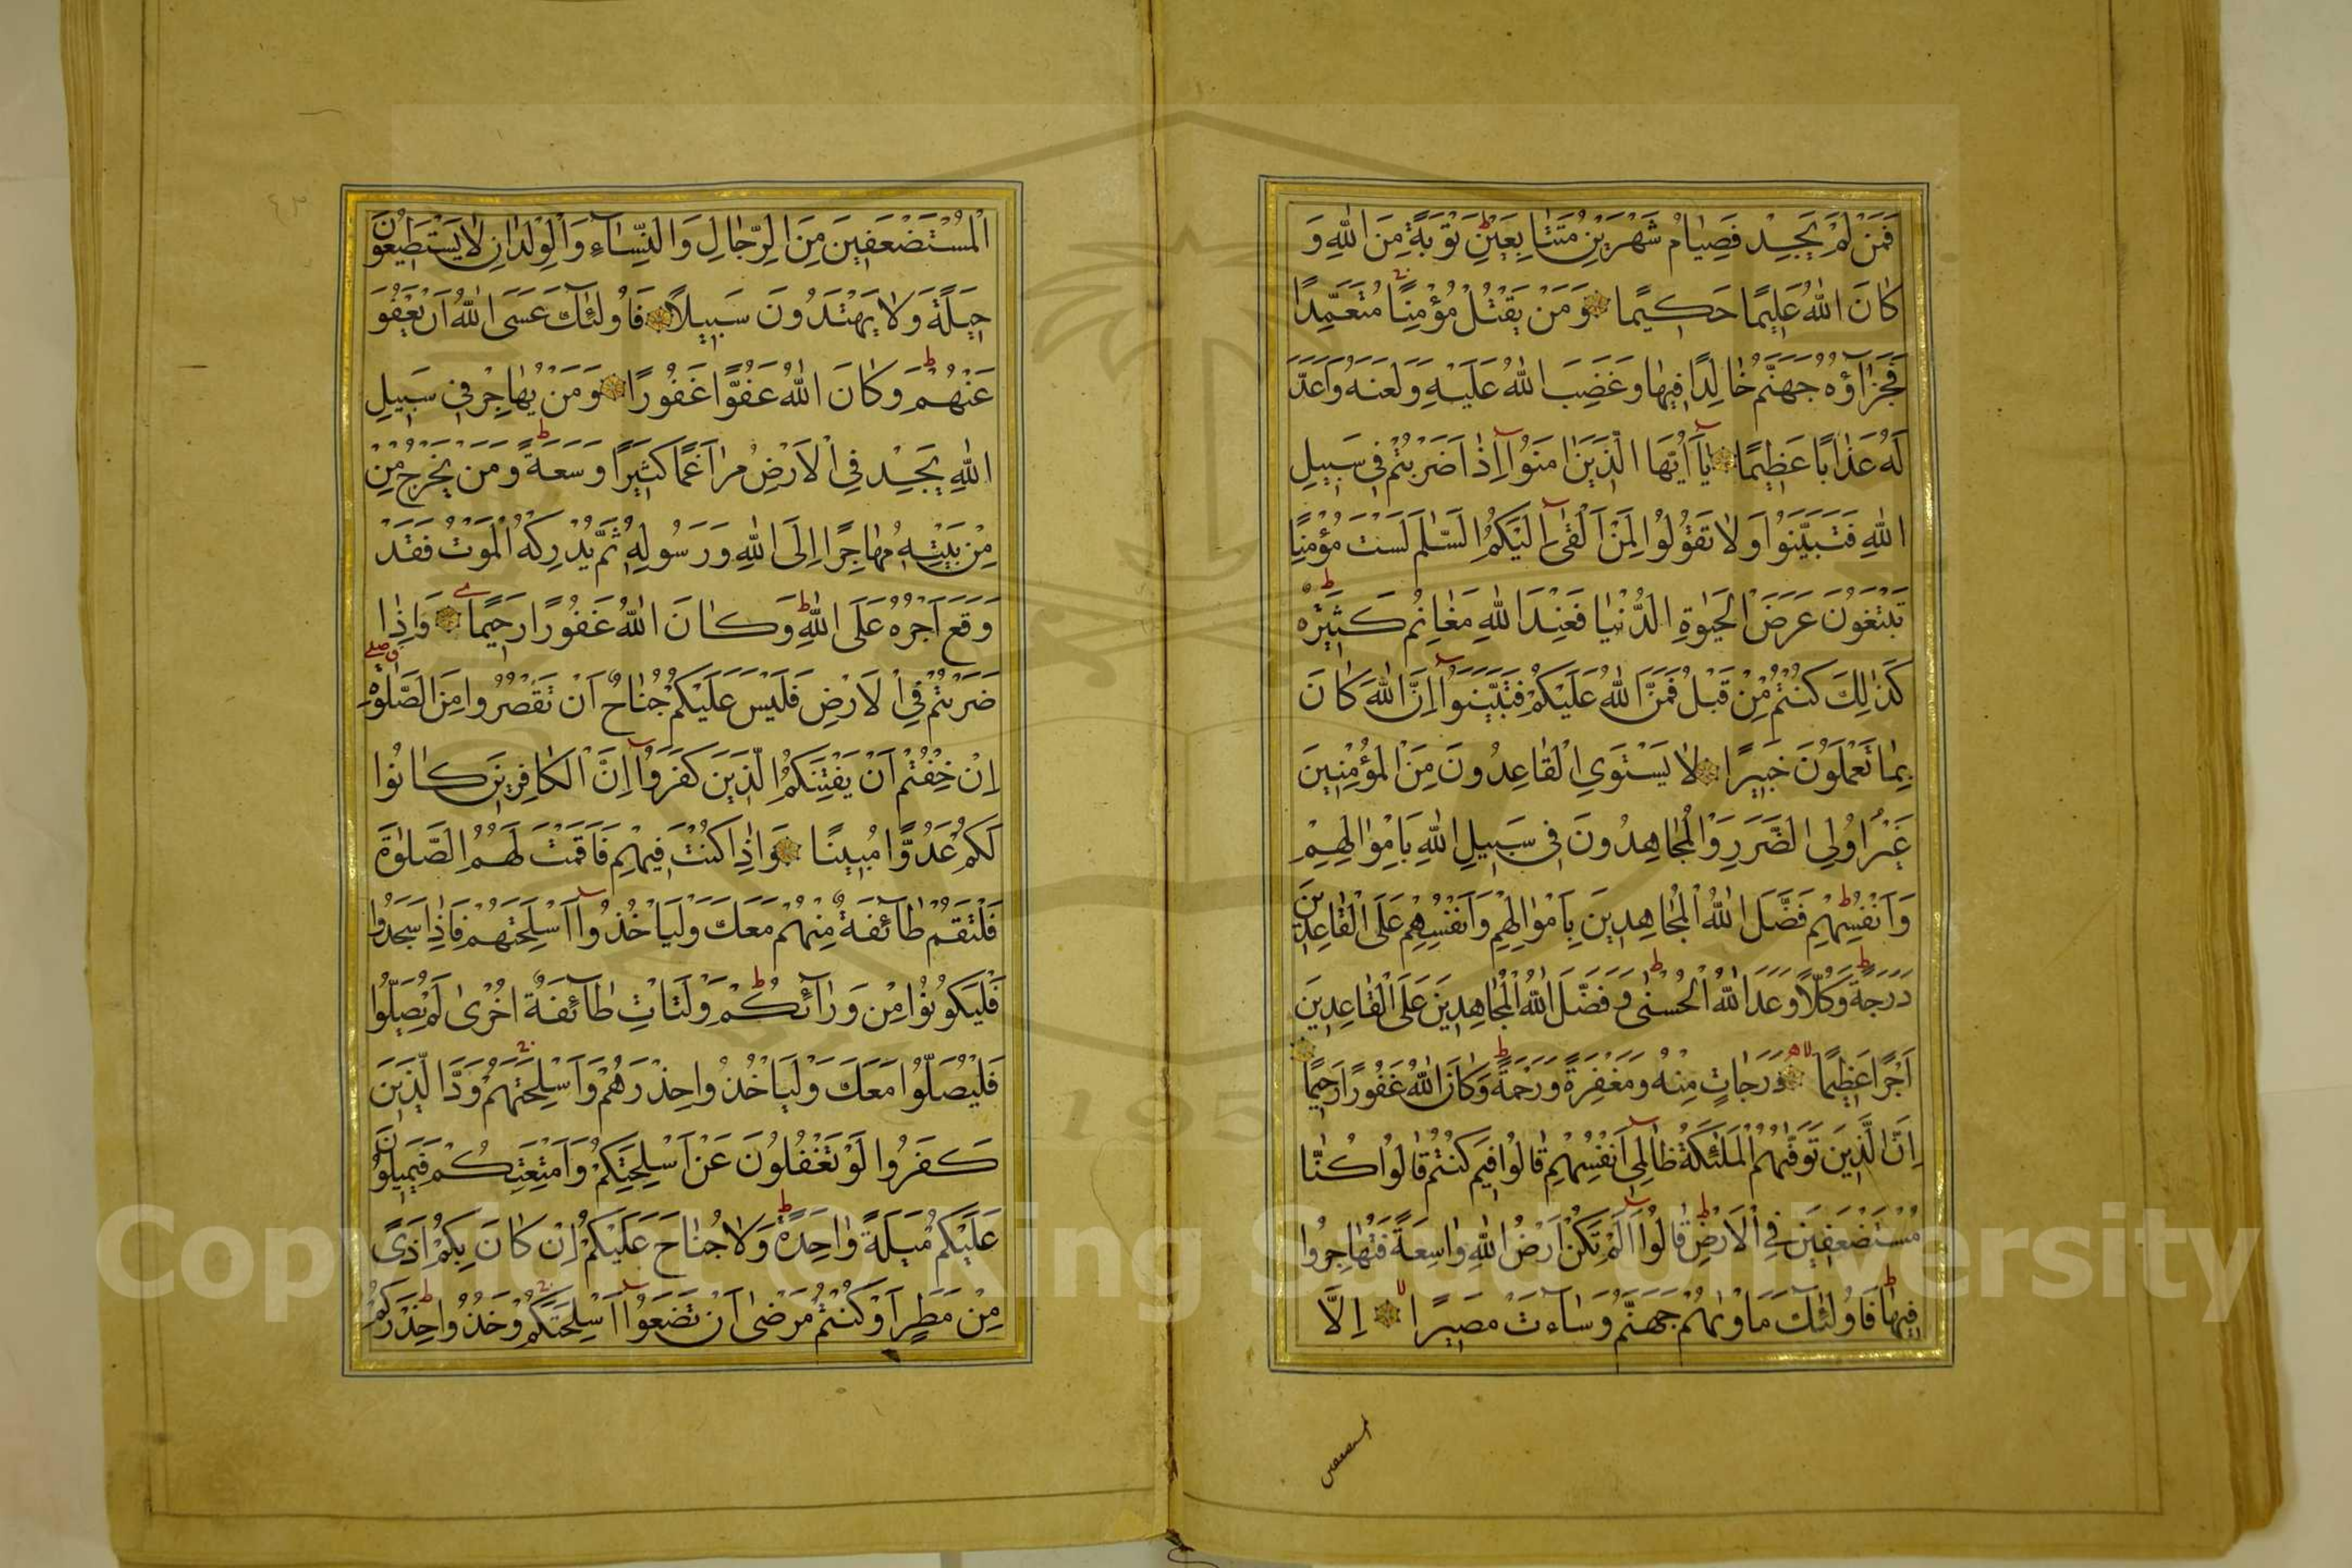 فَمَنْ لَمْ يَجِدْ فَصِيَامُ شَهْرَيْنِ مُتَتَابِعَيْنِ تَوْبَةً مِنَ اللّٰهِ وَ
كَانَ اللّٰهُ عَلِيمًا حَكِيمًا وَمَنْ يَقْتُلْ مُؤْمِنًا مُتَعَمِّدًا
فَجَزَآؤُهُ جَهَنَّمُ خَالِدًا فِيهَا وَغَضِبَ اللّٰهُ عَلَيْهِ وَلَعَنَهُ وَاَعَدَّ
لَهُ عَذَابًا عَظِيمًا يَآ اَيُّهَا الَّذِينَ اٰمَنُوا اِذَا ضَرَبْتُمْ فِي سَبِيلِ
اللّٰهِ فَتَبَيَّنُوا وَلَا تَقُولُوا لِمَنْ اَلْقٰى اِلَيْكُمُ السَّلٰمَ لَسْتَ مُؤْمِنًا
تَبْتَغُونَ عَرَضَ الْحَيٰوةِ الدُّنْيَا فَعِنْدَ اللّٰهِ مَغَانِمُ كَثِيرَةٌ
كَذٰلِكَ كُنْتُمْ مِنْ قَبْلُ فَمَنَّ اللّٰهُ عَلَيْكُمْ فَتَبَيَّنُوا اِنَّ اللّٰهَ كَانَ
بِمَا تَعْمَلُونَ خَبِيرًا لَا يَسْتَوِي الْقَاعِدُونَ مِنَ الْمُؤْمِنِينَ
غَيْرُ اُولِي الضَّرَرِ وَالْمُجَاهِدُونَ فِي سَبِيلِ اللّٰهِ بِاَمْوَالِهِمْ
وَاَنْفُسِهِمْ فَضَّلَ اللّٰهُ الْمُجَاهِدِينَ بِاَمْوَالِهِمْ وَاَنْفُسِهِمْ عَلَى الْقَاعِدِينَ
دَرَجَةً وَكُلًّا وَعَدَ اللّٰهُ الْحُسْنٰى وَفَضَّلَ اللّٰهُ الْمُجَاهِدِينَ عَلَى الْقَاعِدِينَ
اَجْرًا عَظِيمًا دَرَجَاتٍ مِنْهُ وَمَغْفِرَةً وَرَحْمَةً وَكَانَ اللّٰهُ غَفُورًا رَحِيمًا
اِنَّ الَّذِينَ تَوَفّٰيهُمُ الْمَلٰئِكَةُ ظَالِمِي اَنْفُسِهِمْ قَالُوا فِيمَ كُنْتُمْ قَالُوا كُنَّا
مُسْتَضْعَفِينَ فِي الْاَرْضِ قَالُوا اَلَمْ تَكُنْ اَرْضُ اللّٰهِ وَاسِعَةً فَتُهَاجِرُوا
فِيهَا فَاُولٰئِكَ مَاْوٰيهُمْ جَهَنَّمُ وَسَآءَتْ مَصِيرًا اِلَّا
الْمُسْتَضْعَفِينَ مِنَ الرِّجَالِ وَالنِّسَآءِ وَالْوِلْدَانِ لَا يَسْتَطِيعُونَ
حِيلَةً وَلَا يَهْتَدُونَ سَبِيلًا فَاُولٰئِكَ عَسَى اللّٰهُ اَنْ يَعْفُوَ
عَنْهُمْ وَكَانَ اللّٰهُ عَفُوًّا غَفُورًا وَمَنْ يُهَاجِرْ فِي سَبِيلِ
اللّٰهِ يَجِدْ فِي الْاَرْضِ مُرَاغَمًا كَثِيرًا وَسَعَةً وَمَنْ يَخْرُجْ مِنْ
مِنْ بَيْتِهِ مُهَاجِرًا اِلَى اللّٰهِ وَرَسُولِهِ ثُمَّ يُدْرِكْهُ الْمَوْتُ فَقَدْ
وَقَعَ اَجْرُهُ عَلَى اللّٰهِ وَكَانَ اللّٰهُ غَفُورًا رَحِيمًا وَاِذَا
ضَرَبْتُمْ فِي الْاَرْضِ فَلَيْسَ عَلَيْكُمْ جُنَاحٌ اَنْ تَقْصُرُوا مِنَ الصَّلٰوةِ
اِنْ خِفْتُمْ اَنْ يَفْتِنَكُمُ الَّذِينَ كَفَرُوا اِنَّ الْكَافِرِينَ كَانُوا
لَكُمْ عَدُوًّا مُبِينًا وَاِذَا كُنْتَ فِيهِمْ فَاَقَمْتَ لَهُمُ الصَّلٰوةَ
فَلْتَقُمْ طَآئِفَةٌ مِنْهُمْ مَعَكَ وَلْيَاْخُذُوا اَسْلِحَتَهُمْ فَاِذَا سَجَدُوا
فَلْيَكُونُوا مِنْ وَرَآئِكُمْ وَلْتَاْتِ طَآئِفَةٌ اُخْرٰى لَمْ يُصَلُّوا
فَلْيُصَلُّوا مَعَكَ وَلْيَاْخُذُوا حِذْرَهُمْ وَاَسْلِحَتَهُمْ وَدَّ الَّذِينَ
كَفَرُوا لَوْ تَغْفُلُونَ عَنْ اَسْلِحَتِكُمْ وَاَمْتِعَتِكُمْ فَيَمِيلُونَ
عَلَيْكُمْ مَيْلَةً وَاحِدَةً وَلَا جُنَاحَ عَلَيْكُمْ اِنْ كَانَ بِكُمْ اَذًى
مِنْ مَطَرٍ اَوْ كُنْتُمْ مَرْضٰى اَنْ تَضَعُوا اَسْلِحَتَكُمْ وَخُذُوا حِذْرَكُمْ
Copyright © King Saud University